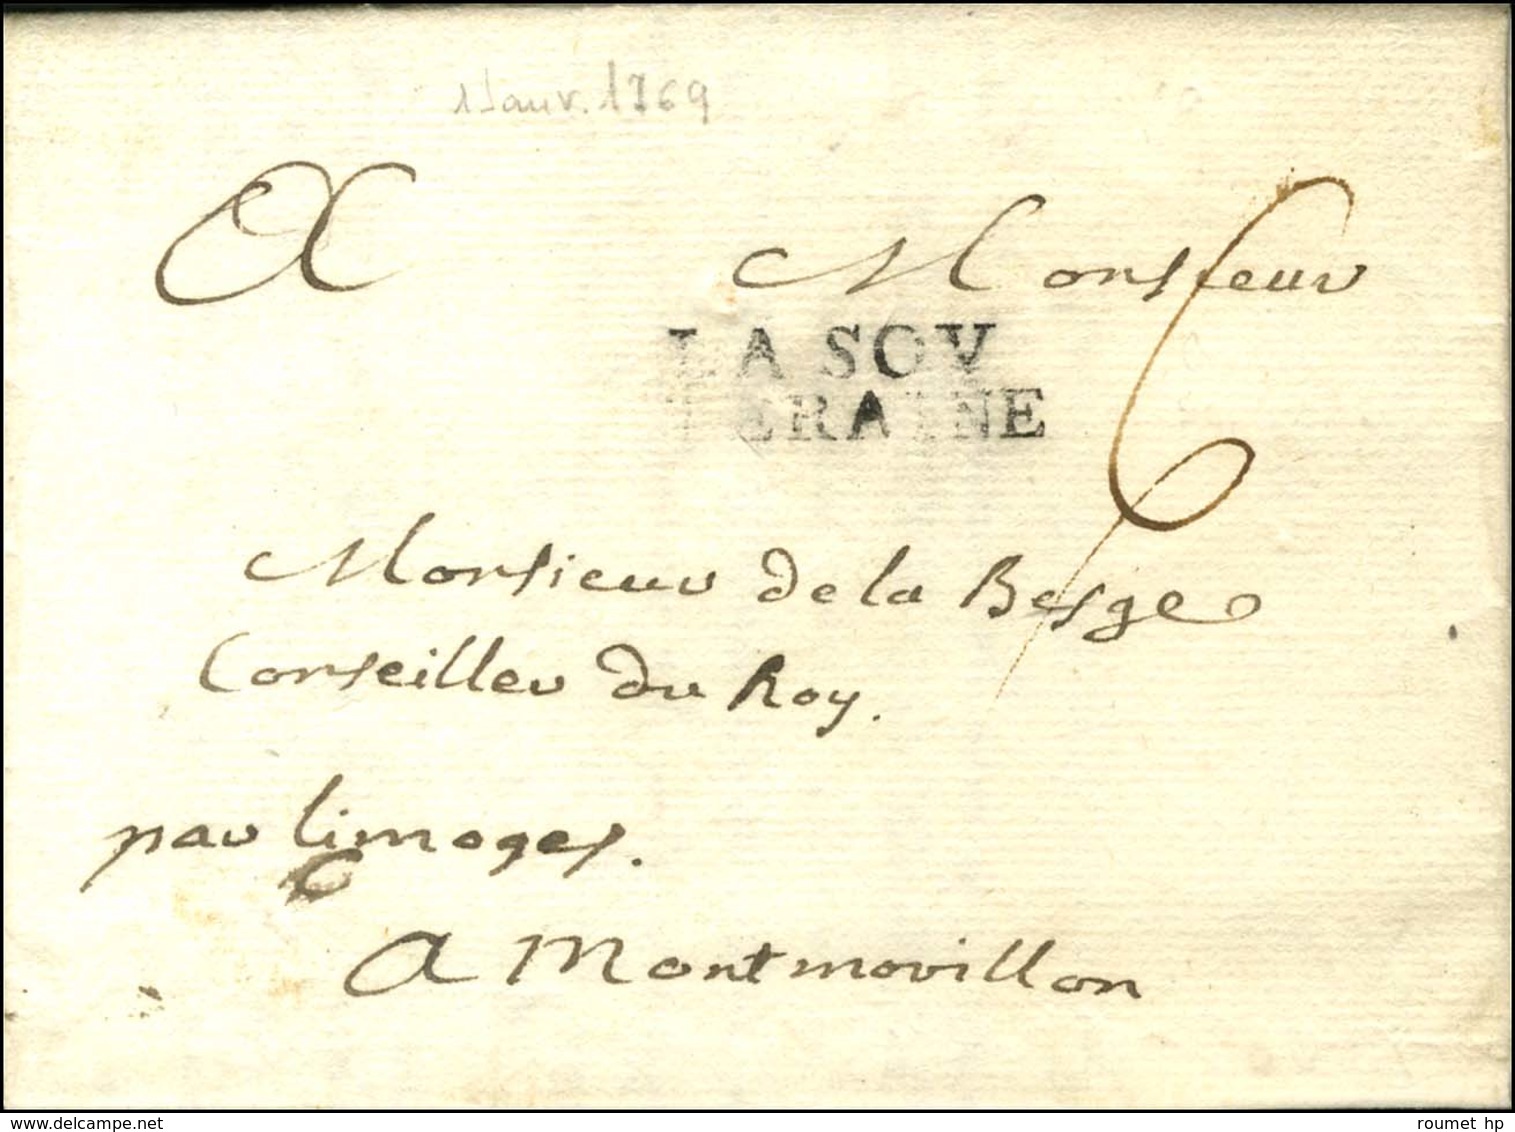 1 Janv. 1769
A Monsieur
6
LA SOV
TERAINE
Monsieur de la Besge
Conseiller du Roy.
par limoges.
a Montmorillon
www.delcampe.net
roumet hp